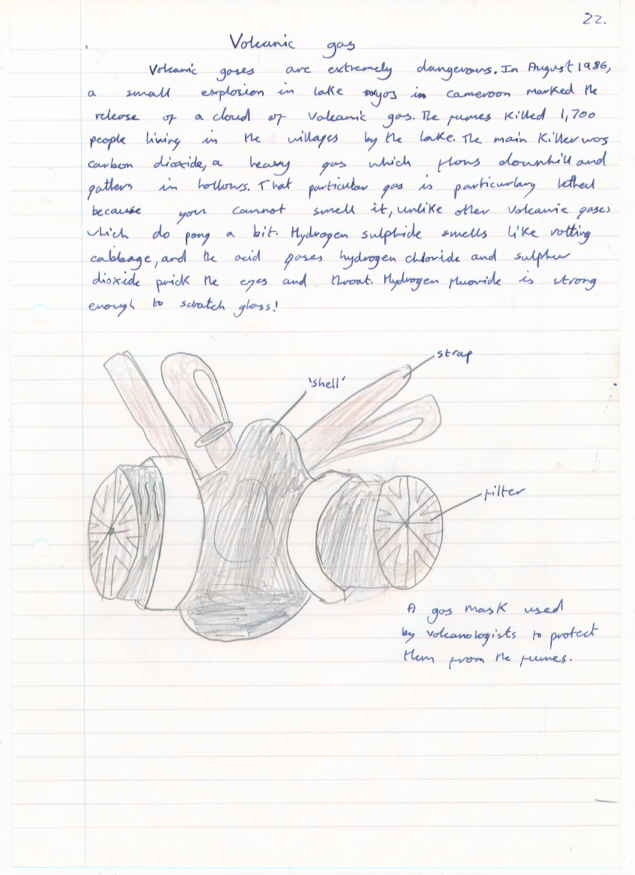 22.
Volcanic gas
Volcanic gases are extremely dangerous. In August 1986,
a small explosion in lake nyos in Cameroon marked the
release of a cloud of volcanic gas. The fumes killed 1,700
people living in the villages by the lake. The main killer was
carbon dioxide, a heavy gas which flows downhill and
gathers in hollows. That particular gas is particularly lethal
because you cannot smell it, unlike other volcanic gases
which do pong a bit. Hydrogen sulphide smells like rotting
cabbage, and the acid gases hydrogen chloride and sulphur
dioxide prick the eyes and throat. Hydrogen fluoride is strong
enough to scratch glass!
strap
'shell'
filter
A gas mask used
by volcanologists to protect
them from the fumes.